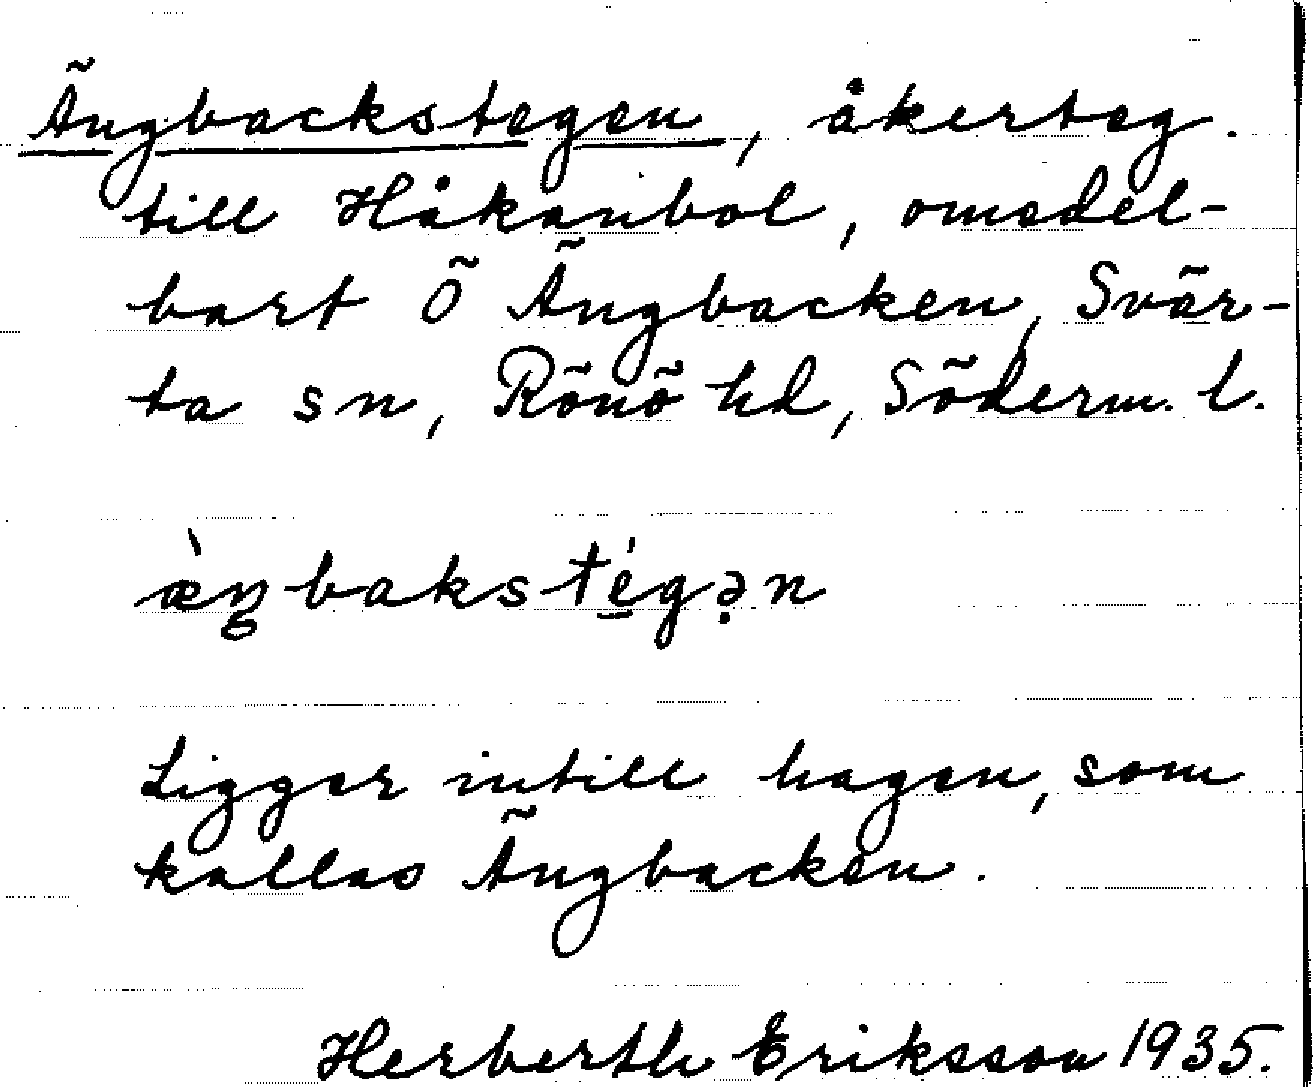 Ängbackstegen, åkerteg.
till Håkanbol, omedel-
bart Ö Ängbacken, Svär-
ta sn, Rönö hd, Söderm. l.
æ̀ŋbakstég̣ən
Ligger intill hagen, som
kallas Ängbacken.
Herberth Eriksson 1935.